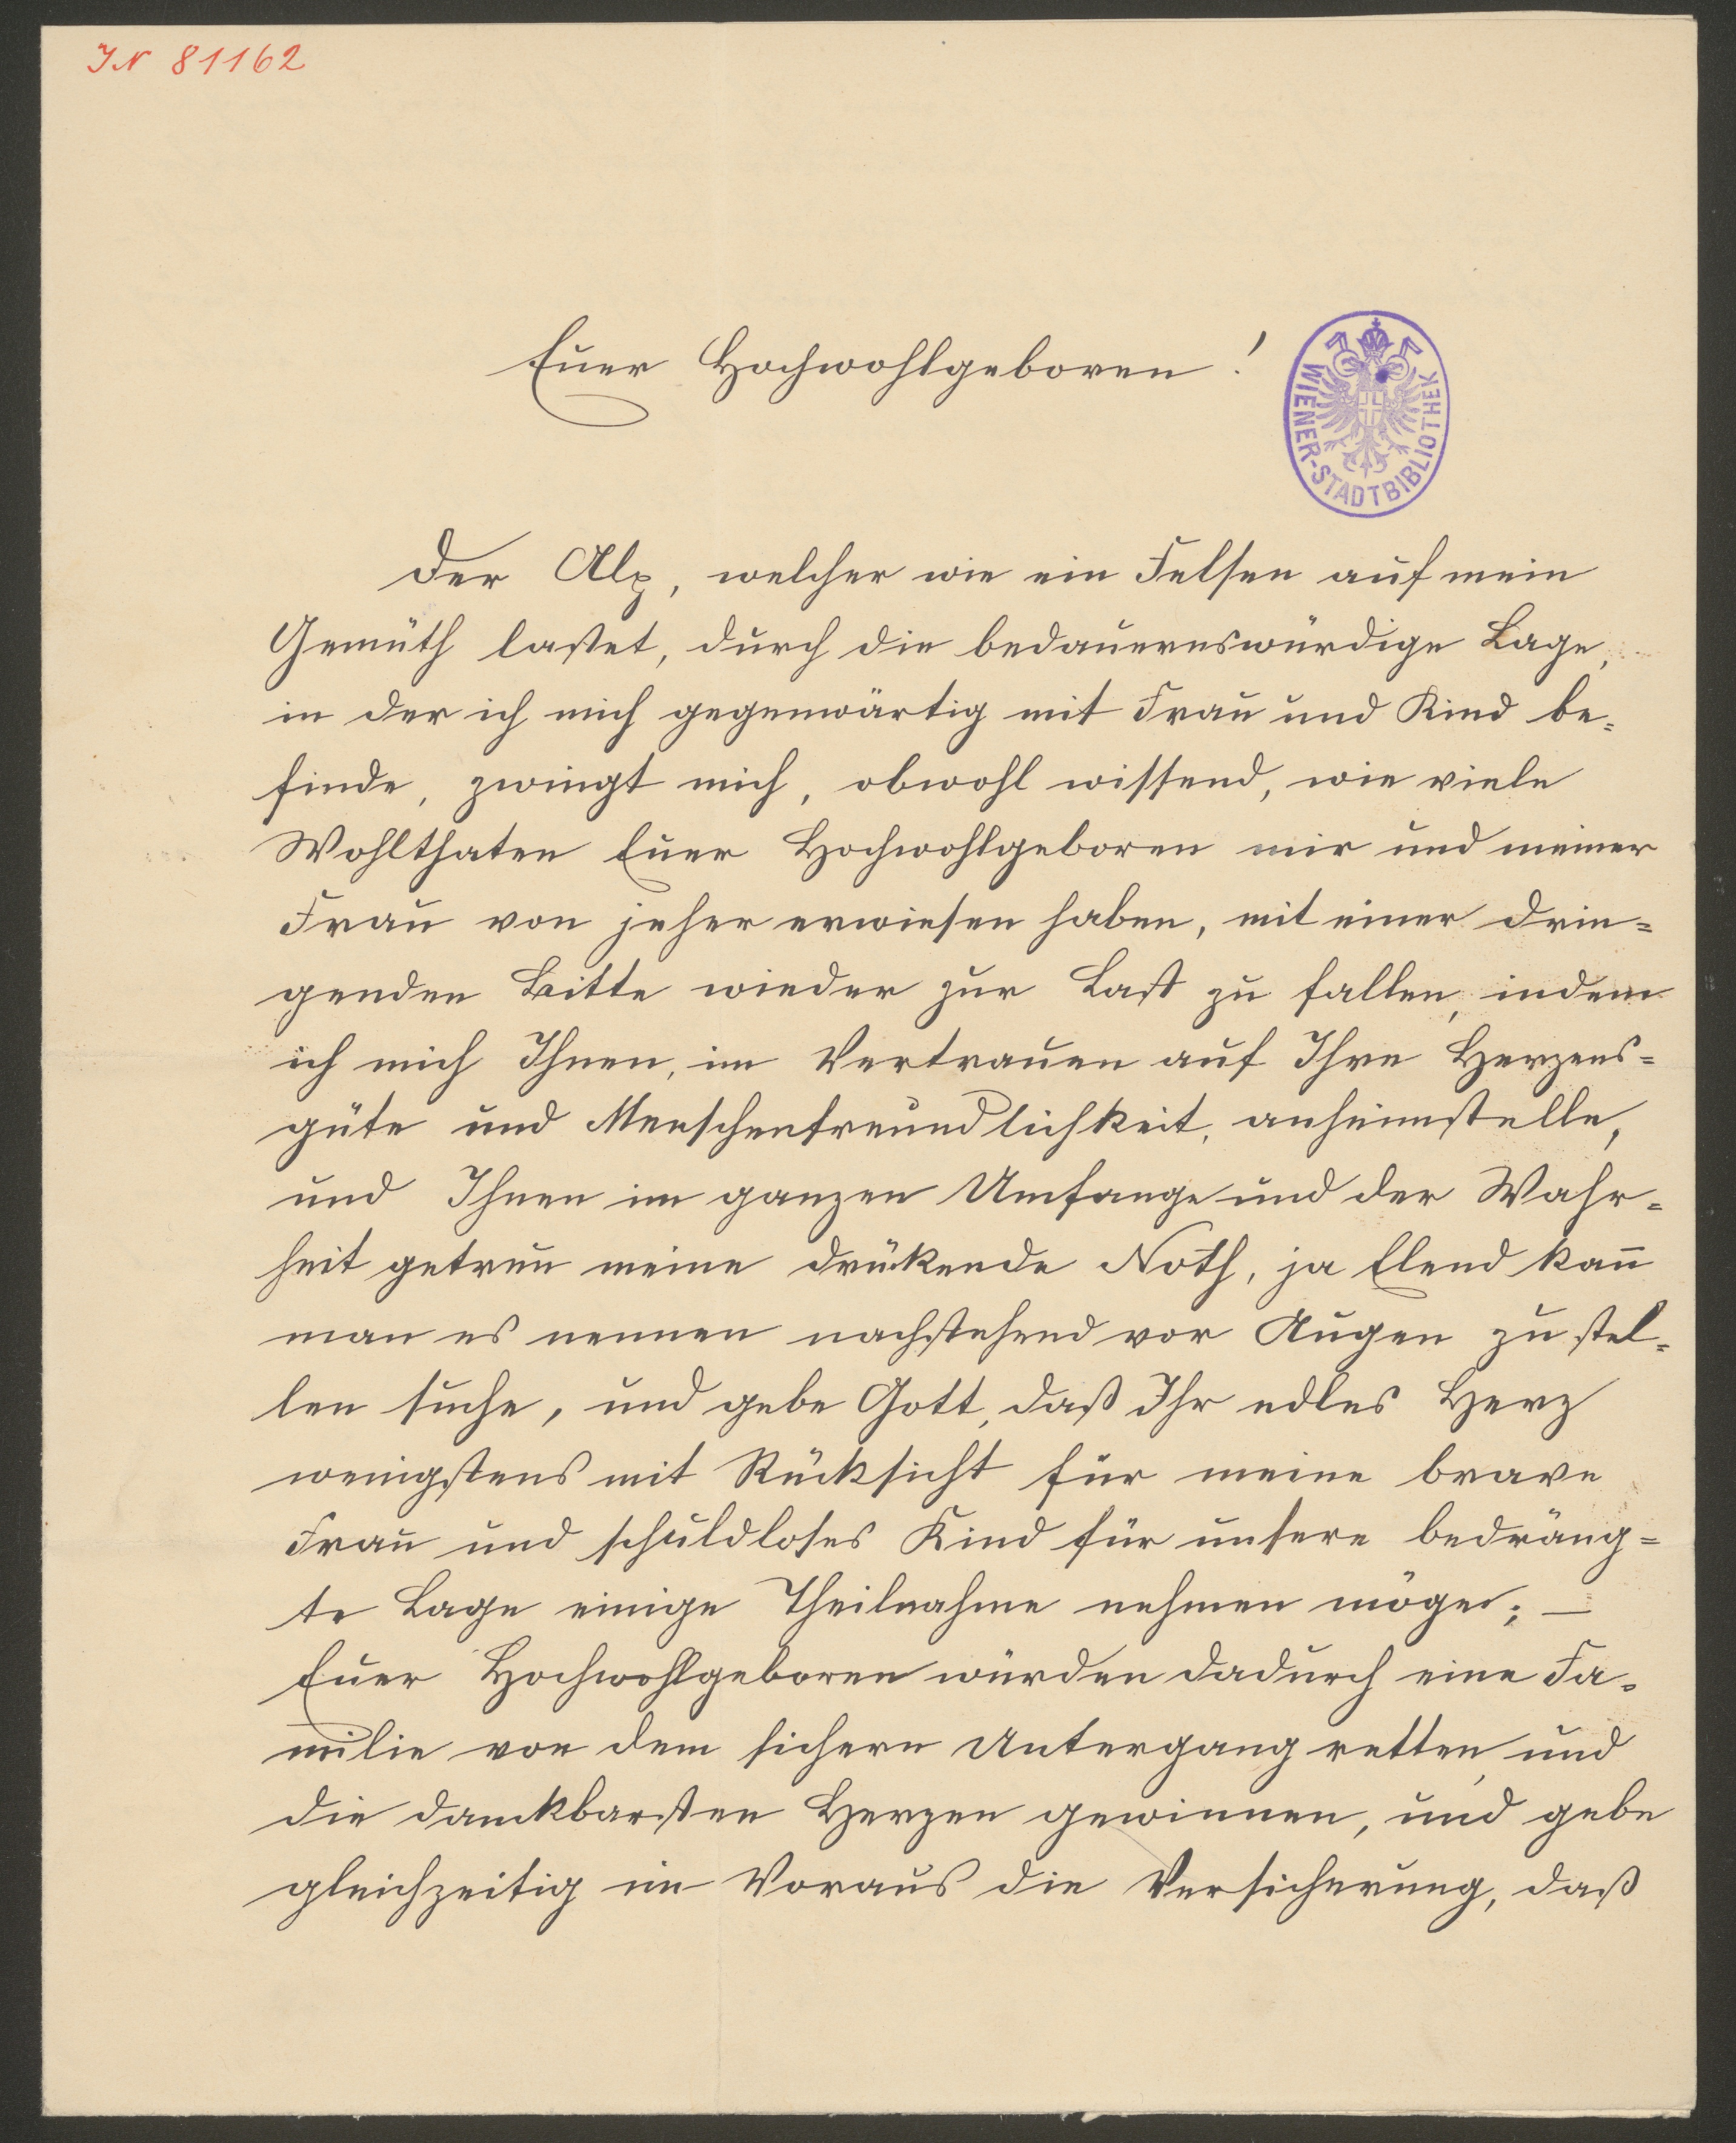 IN 81162
Euer Hochwohlgeboren!
WIENER-STADTBIBLIOTHEK
Der Alp, welcher wie ein Felsen auf mein
Gemüth lastet, durch die bedauernswürdige Lage,
in der ich mich gegenwärtig mit Frau und Kind be=
finde, zwingt mich, obwohl wissend, wie viele
Wohlthaten Euer Hochwohlgeboren mir und meiner
Frau von jeher erwiesen haben, mit einer drin=
genden Bitte wieder zur Last zu fallen, indem
ich mich Ihnen, im Vertrauen auf Ihre Herzens=
güte und Menschenfreundlichkeit, anheimstelle,
und Ihnen im ganzen Umfange und der Wahr=
heit getreu meine drükende Noth, ja Elend kan̅
man es nennen nachstehend vor Augen zu stel=
len suche, und gebe Gott, daß Ihr edles Herz
wenigstens mit Rücksicht für meine brave
Frau und schuldloses Kind für unsere bedräng=
te Lage einige Theilnahme nehmen möge; —
Euer Hochwohlgeboren würden dadurch eine Fa=
milie von dem sichern Untergang retten, und
die danckbarsten Herzen gewinnen, und gebe
gleichzeitig im Voraus die Versicherung, daß